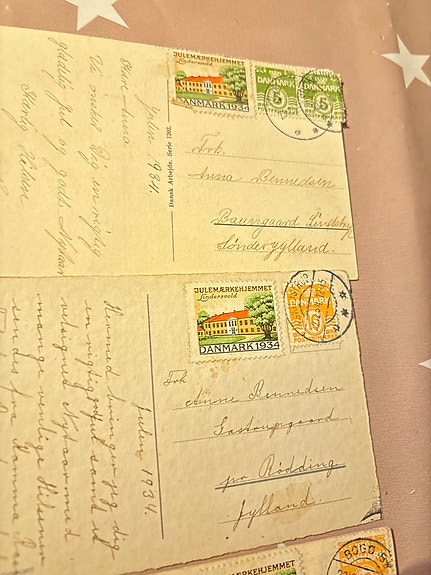 JULEMÆRKEHJEMMET
Lindersvold
DANMARK 1934
DANMARK
5
DANMARK
5
Julen 1934.
Kære Anna
Vi ønske Dig en rigtig
glædelig Jul og godt Nytaar
Kærlig Hilsen
Dansk Arbejde. Serie 1202.
Frk.
Anna Bennedsen
Baungaard
Sønderjylland.
JULEMÆRKEHJEMMET
Lindersvold
DANMARK 1934
DANMARK
Julen 1934.
Hermed bringer jeg dig
en rigtig god Jul samt et
velsignet Nytaar med
mange venlige Hilsner
sendes fra
Frk
Anne Bennedsen
Gastrupgaard
pr Rødding
Jylland.
JULEMÆRKEHJEMMET
BOGØ